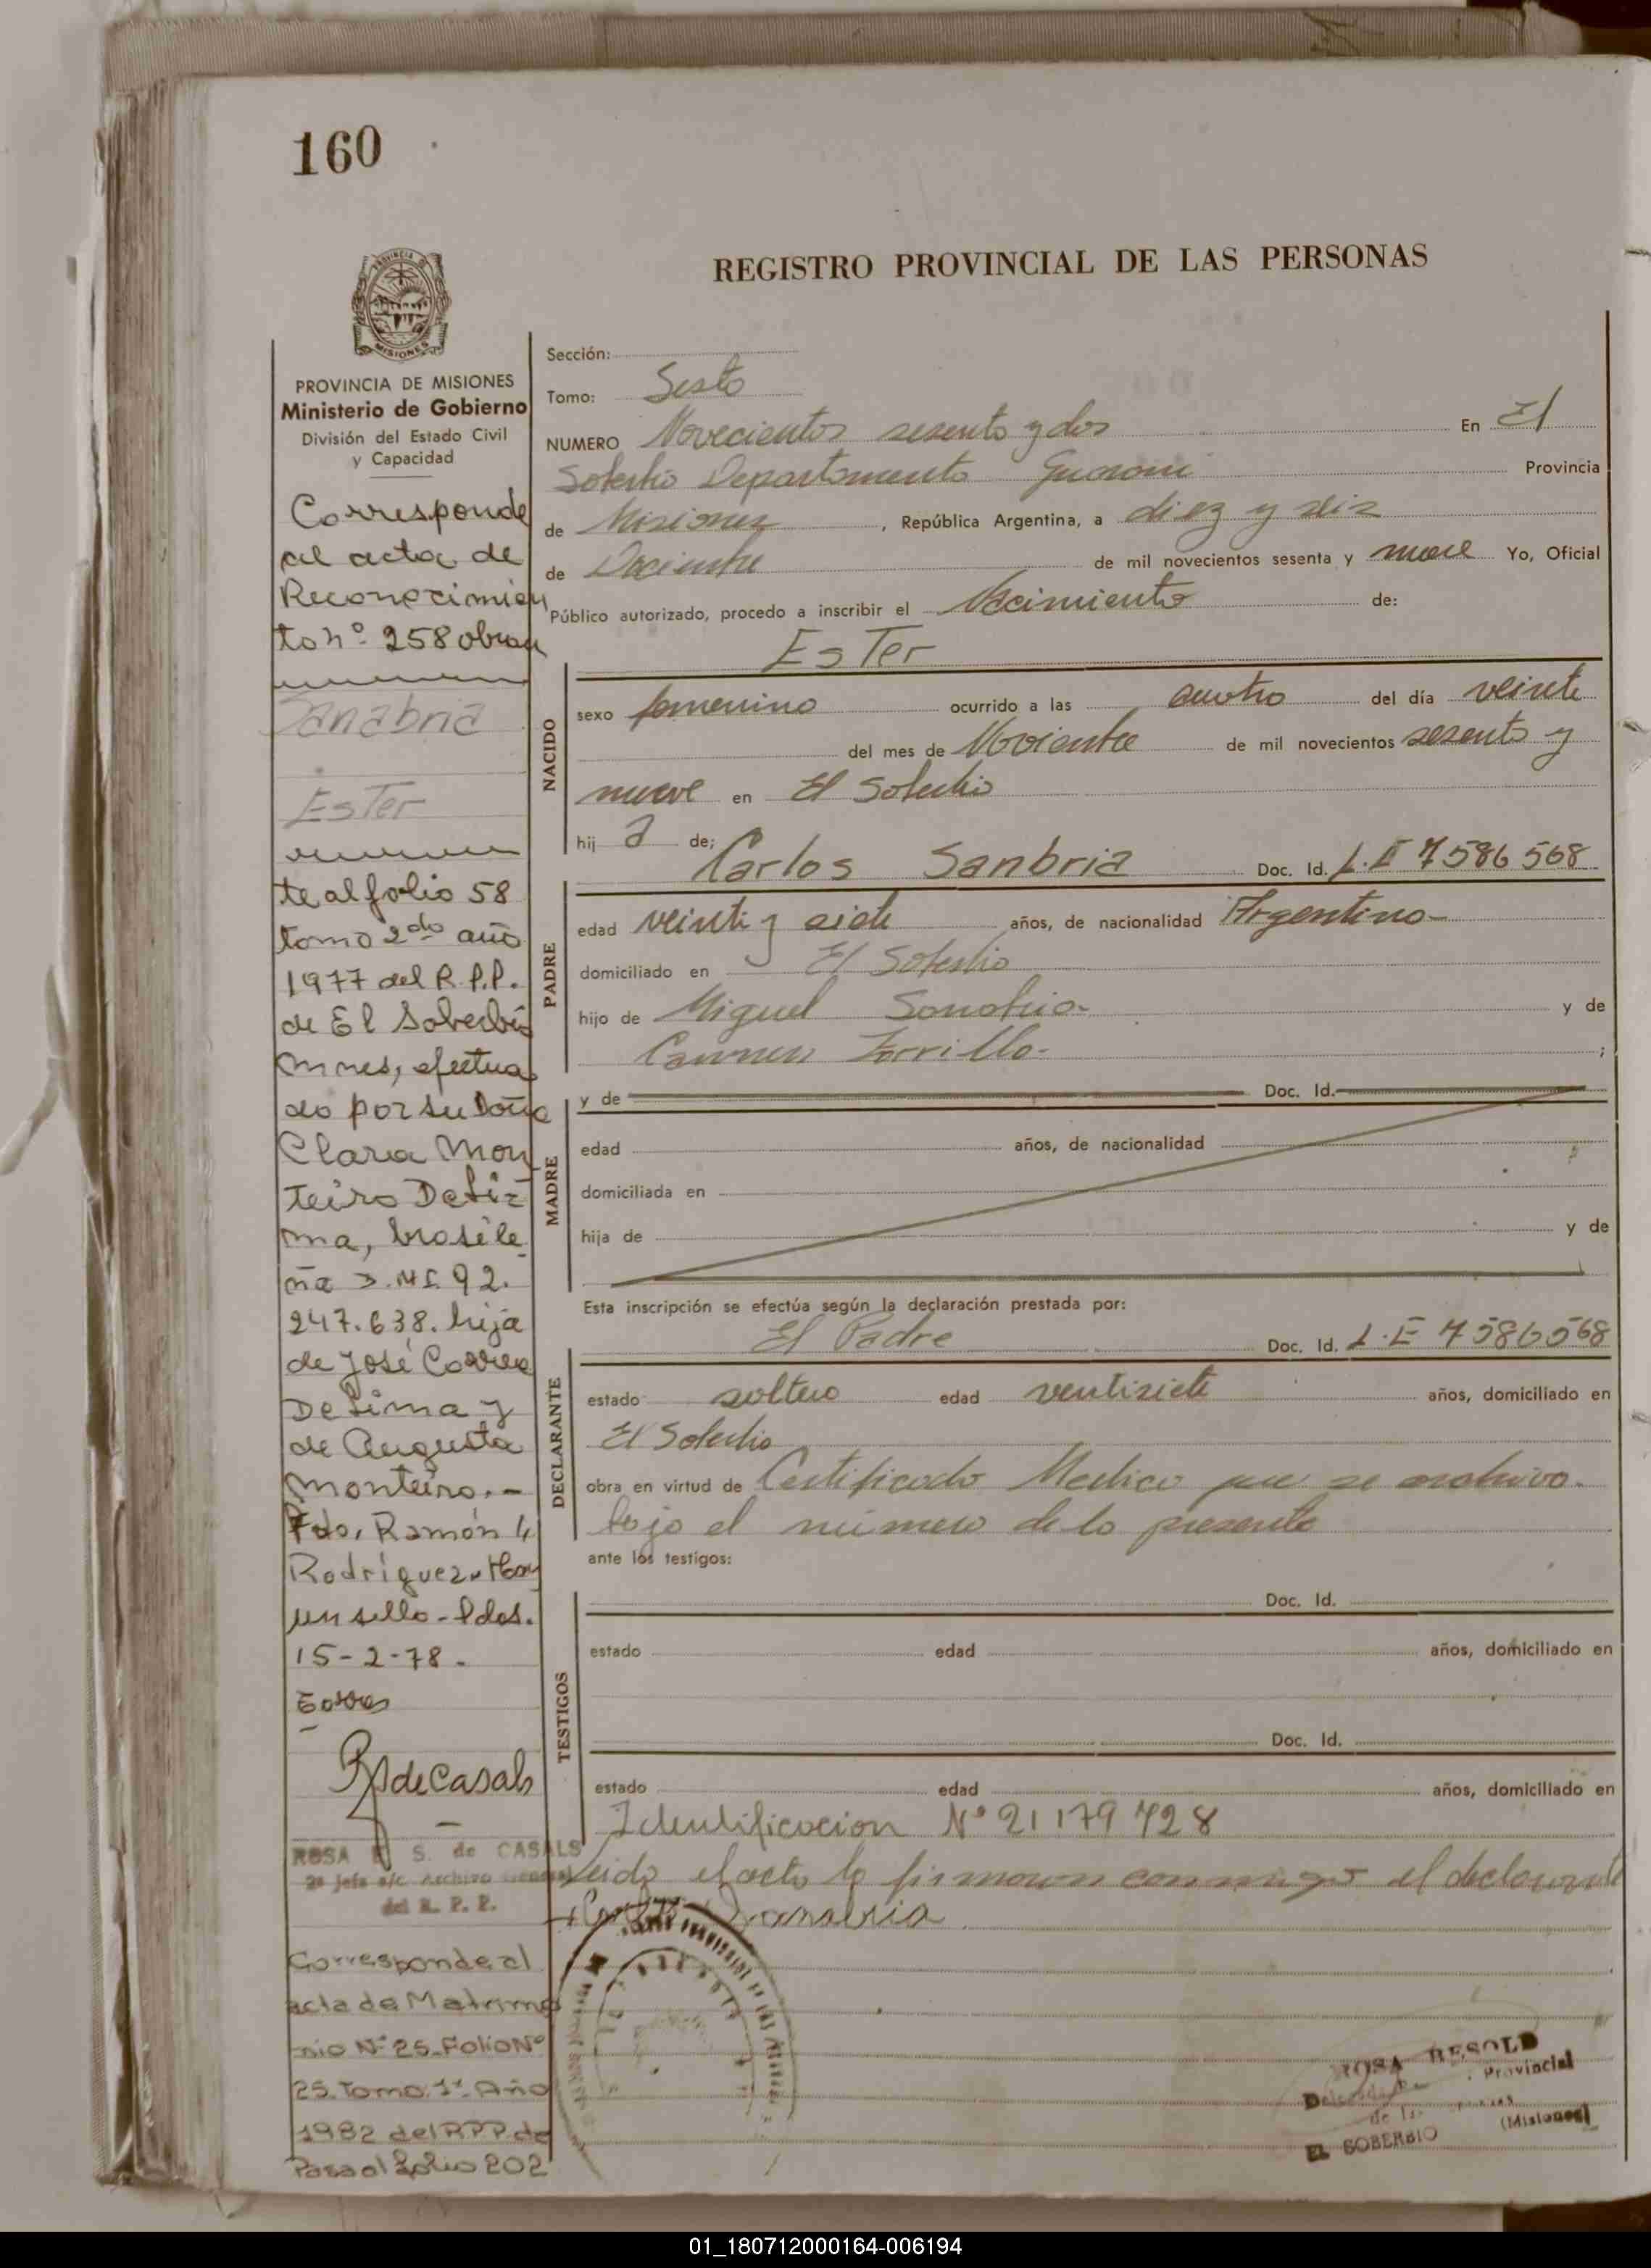 160
REGISTRO PROVINCIAL DE LAS PERSONAS
MISIONES
PROVINCIA DE MISIONES
Ministerio de Gobierno
División del Estado Civil
y Capacidad
Corresponde
al acta de
Reconocimien
to nº 258 obran
Sanabria
Ester
te al folio 58
tomo 2do año
1977 del R.P.P.
de El Soberbio
Mnes, efectua
do por su Doña
Clara Mon
teiro De Li
ma, brasile
ña D.N.I. 92.
247.638. hija
de José Correa
De Lima y
de Augusta
Monteiro.-
Fdo. Ramón
Rodríguez. Hay
un sello - Pdas.
15-2-78.
de Casals
ROSA S. de CASALS
2ª Jefe a/c. Archivo General
del R. P. P.
Corresponde al
acta de Matrimo
nio Nº 25 Folio Nº
25. Tomo 1º Año
1982 del RPP de
Pasa al folio 202
Sección:
Tomo: Sesto
NUMERO Novecientos sesenta y dos En El
Soberbio Departamento Guarani Provincia
de Misiones, República Argentina, a diez y seis
de Diciembre de mil novecientos sesenta y nueve Yo, Oficial
Público autorizado, procedo a inscribir el Nacimiento de:
Ester
NACIDO
sexo femenino ocurrido a las cuatro del día veinte
del mes de Noviembre de mil novecientos sesenta y
nueve en El Soberbio
hij a de;
Carlos Sanbria Doc. Id. L.E 7586568
PADRE
edad veinti y siete años, de nacionalidad Argentino-
domiciliado en El Soberbio
hijo de Miguel Sanabria- y de
Carmen Zorrilla- ;
y de Doc. Id.
MADRE
edad años, de nacionalidad
domiciliada en
hija de y de
Esta inscripción se efectúa según la declaración prestada por:
El Padre Doc. Id. L.E 7586568
DECLARANTE
estado soltero edad ventisiete años, domiciliado en
El Soberbio
obra en virtud de Certificado Medico que se archiva.
bajo el número de la presente
ante los testigos:
Doc. Id.
TESTIGOS
estado edad años, domiciliado en
Doc. Id.
estado edad años, domiciliado en
Identificacion Nº 21179728
Leida el acta la firman conmigo el declarante
Carlos Sanabria
ROSA BESOLD
Provincial
de las
(Misiones)
EL SOBERBIO
01_180712000164-006194